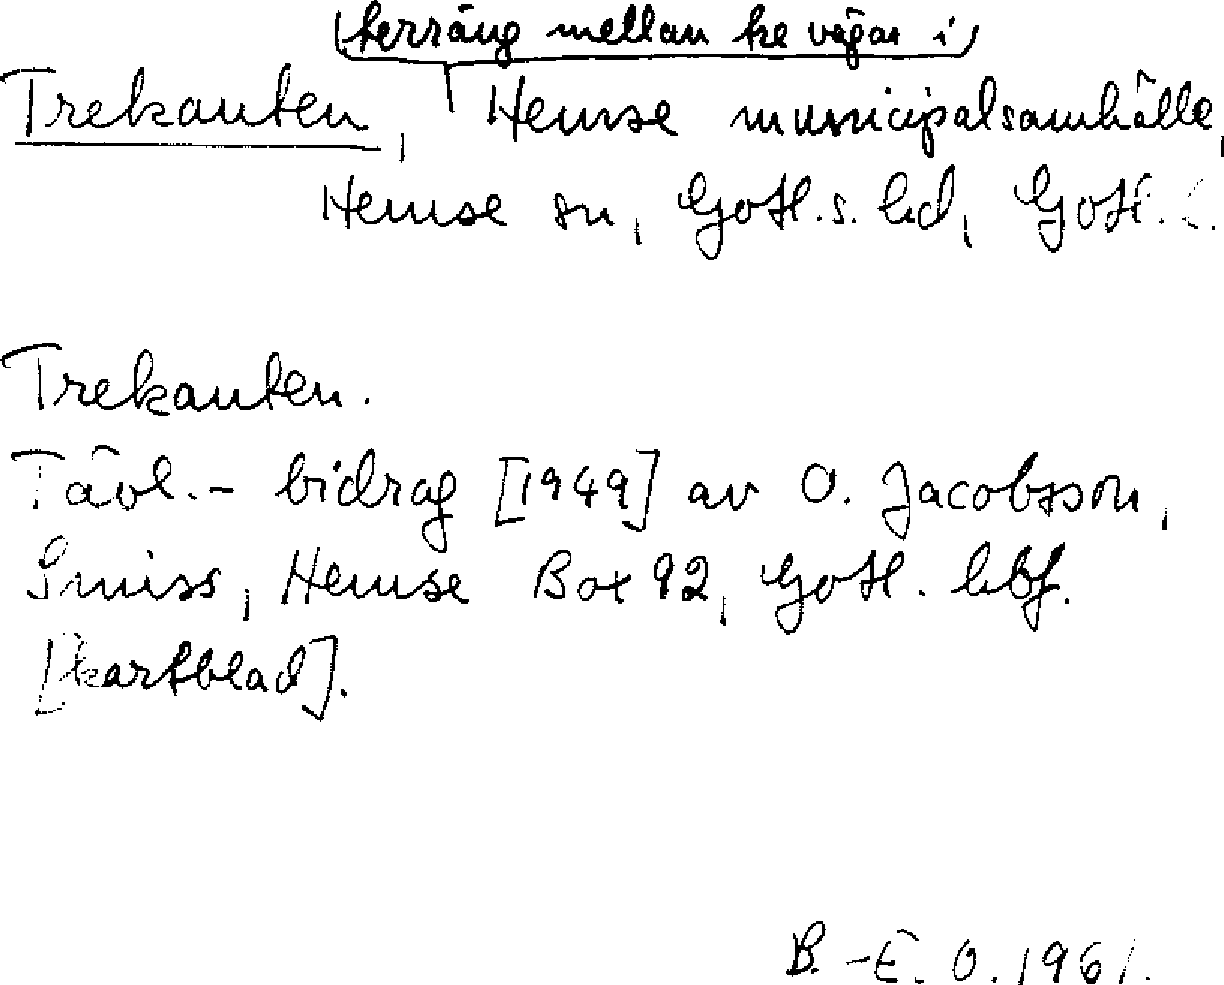 terräng mellan tre vägar i
Trekanten, Hemse municipalsamhälle,
Hemse sn, Gotl.s. hd, Gotl. l.
Trekanten.
Tävl.- bidrag [1949] av O. Jacobsson,
Smiss, Hemse Box 92, Gotl. hbf.
[kartblad].
B.-E. O. 1961.